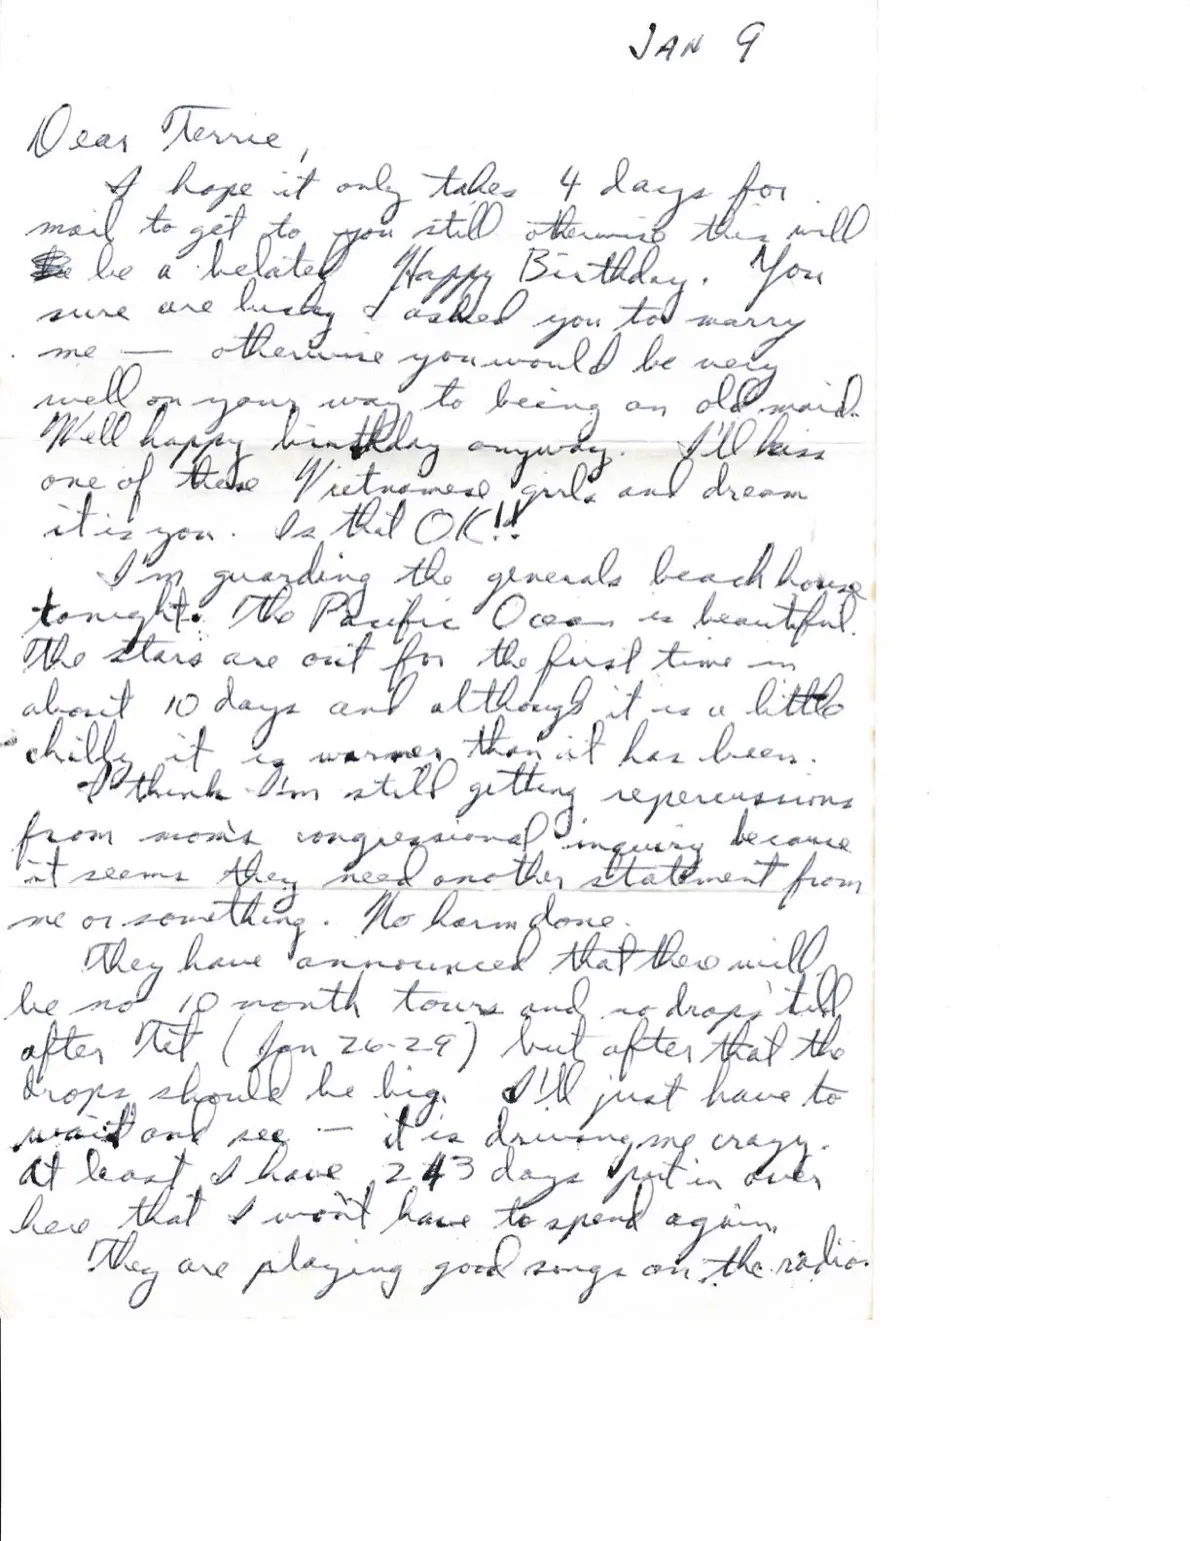 JAN 9
Dear Terrie,
I hope it only takes 4 days for
mail to get to you still otherwise this will
be a belated Happy Birthday. You
sure are lucky I asked you to marry
me — otherwise you would be very
well on your way to being an old maid.
Well happy birthday anyway. I'll kiss
one of these Vietnamese girls and dream
it is you. Is that OK!!
I'm guarding the generals beach house
tonight. The Pacific Ocean is beautiful.
The stars are out for the first time in
about 10 days and although it is a little
chilly it is warmer than it has been.
I think I'm still getting repercussions
from mom's congressional inquiry because
it seems they need another statement from
me or something. No harm done.
They have announced that there will
be no 10 month tours and no drops till
after Tet (Jan 26-29) but after that the
drops should be big. I'll just have to
wait and see — it is driving me crazy.
At least I have 243 days put in over
here that I won't have to spend again.
They are playing good songs on the radio.